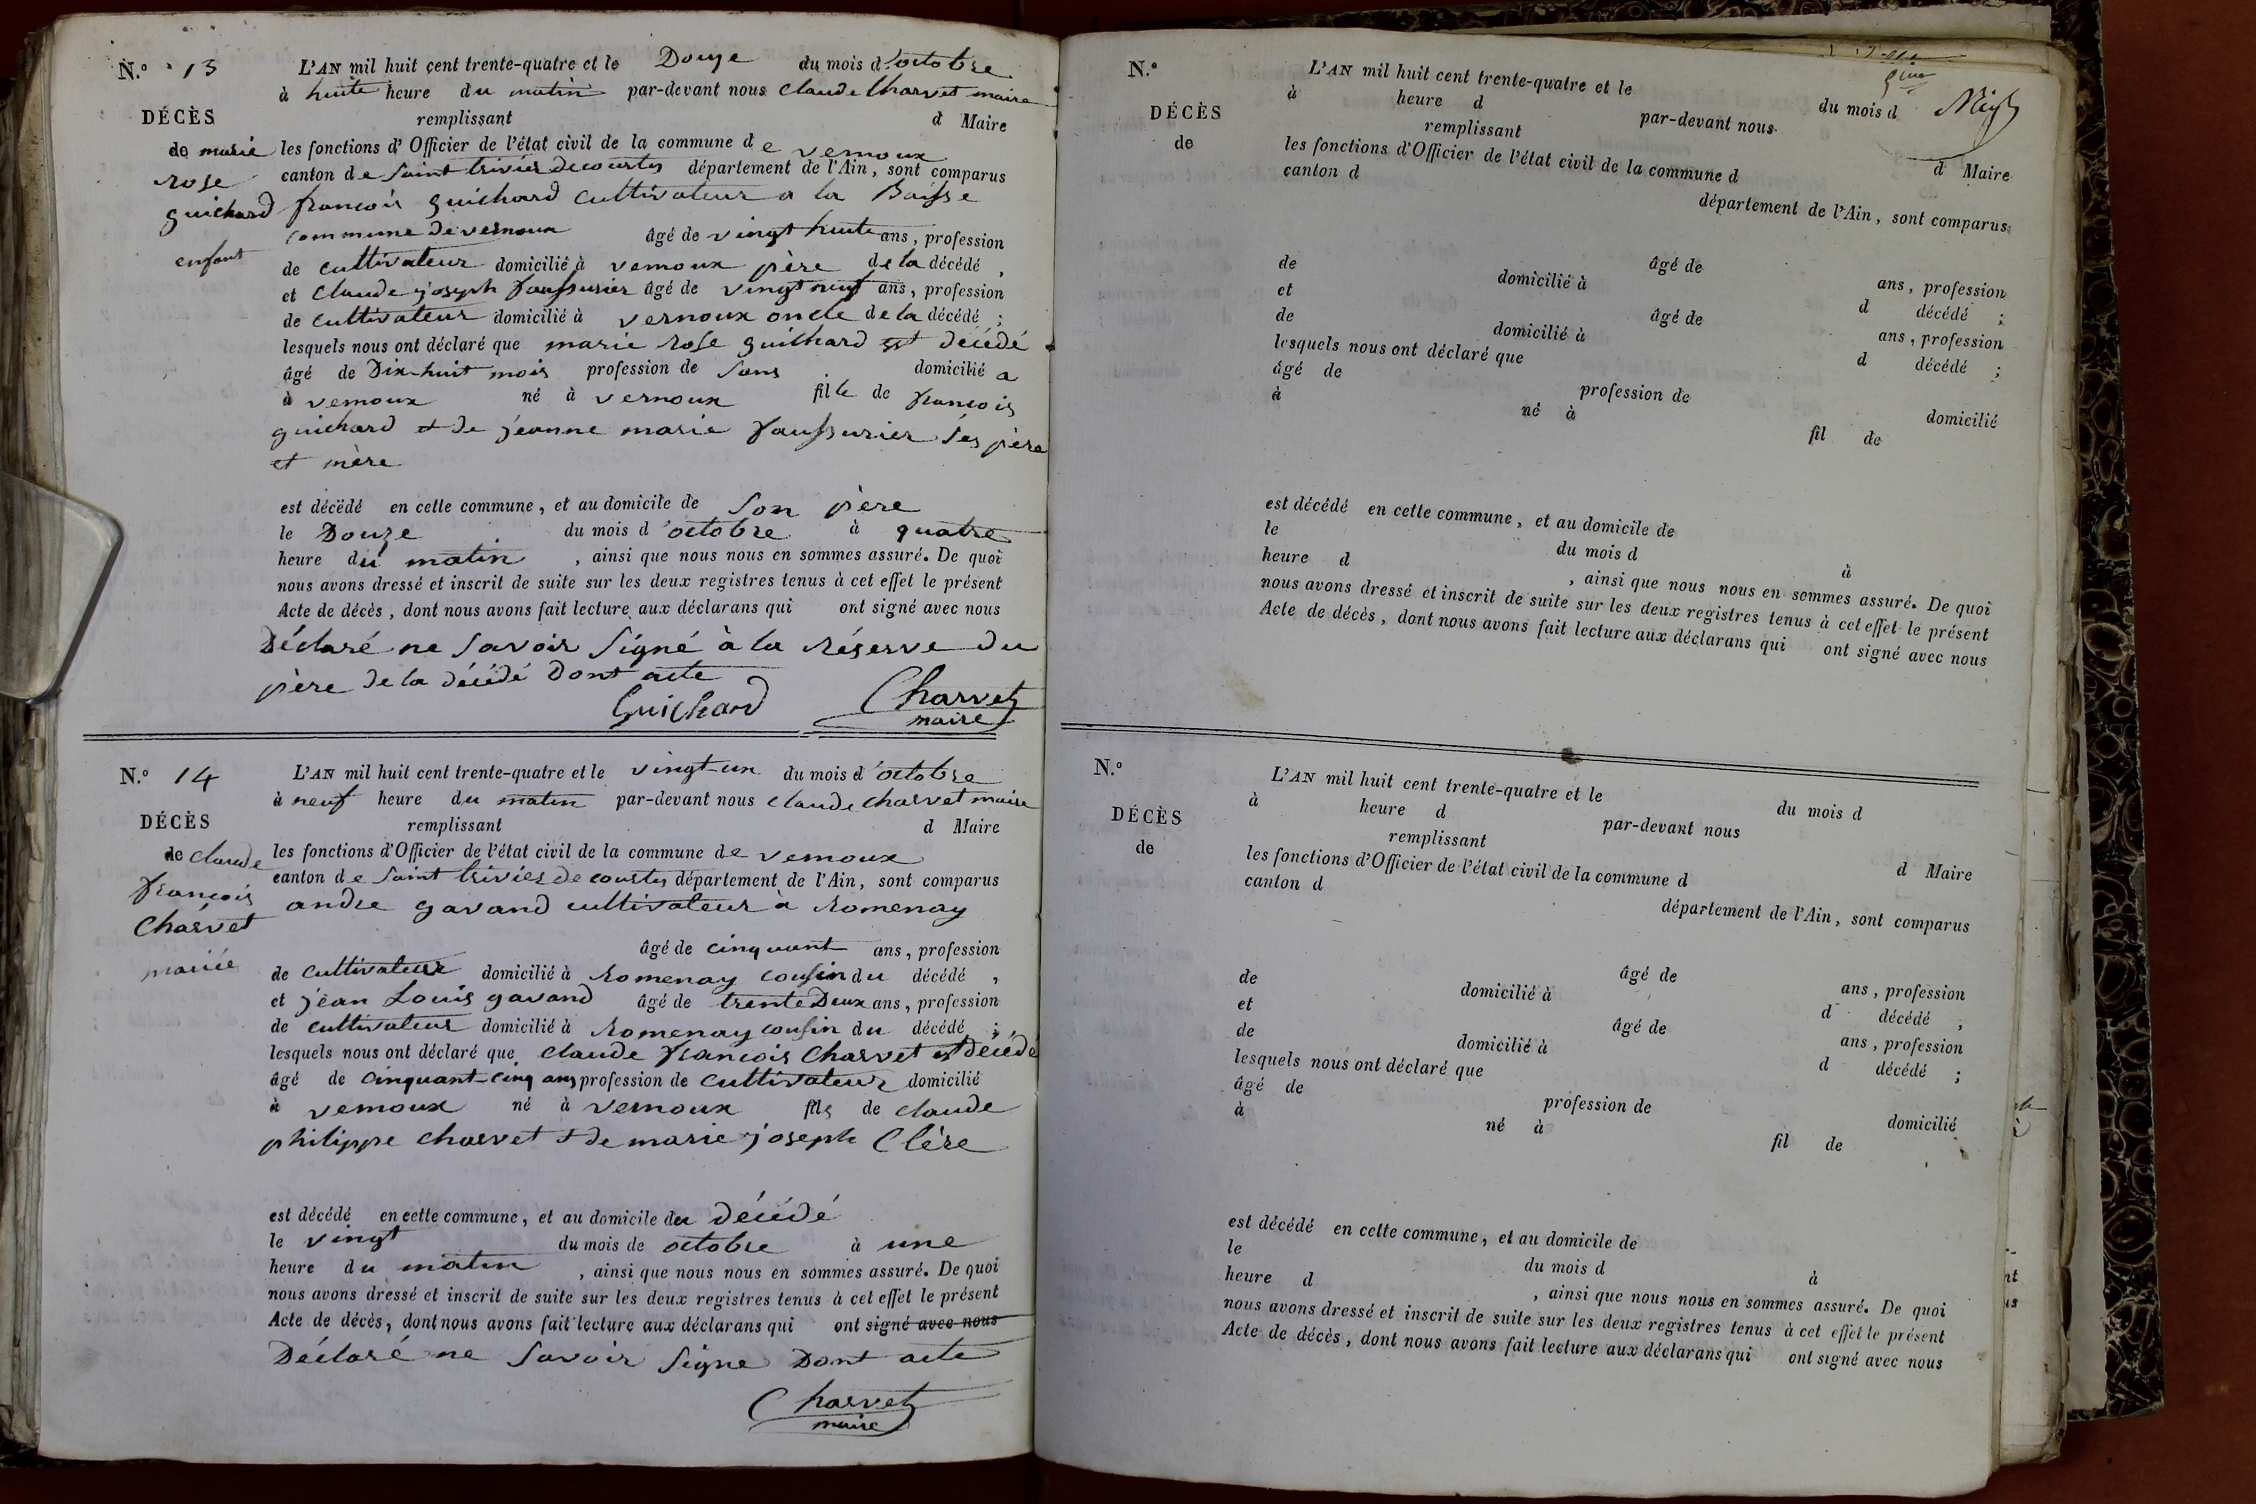 N.º 13
L'AN mil huit cent trente-quatre et le Douze du mois d'octobre
à huite heure du matin par-devant nous claude Charvet maire
DÉCÈS
remplissant d Maire
de marie les fonctions d'Officier de l'état civil de la commune de vernoux
rose canton de Saint trivier de courtes département de l'Ain, sont comparus
guichard françois guichard cultivateur a la Baisse
commune de vernoux âgé de vingt huite ans, profession
enfant
de cultivateur domicilié à vernoux père de la décédé,
et claude joseph faussurier âgé de vingt neuf ans, profession
de cultivateur domicilié à vernoux oncle de la décédé;
lesquels nous ont déclaré que marie rose guichard est décédé
âgé de Dix-huit mois profession de Sans domicilié a
à vernoux né à vernoux fille de françois
guichard et de jeanne marie faussurier ses père
et mère
est décédé en cette commune, et au domicile de Son père
le Douze du mois d'octobre à quatre
heure du matin, ainsi que nous nous en sommes assuré. De quoi
nous avons dressé et inscrit de suite sur les deux registres tenus à cet effet le présent
Acte de décès, dont nous avons fait lecture aux déclarans qui ont signé avec nous
Déclaré ne Savoir Signé à la réserve du
père de la décédé Dont acte
Guichard Charvet
maire
N.º 14
L'AN mil huit cent trente-quatre et le vingt-un du mois d'octobre
à neuf heure du matin par-devant nous claude charvet maire
DÉCÈS
remplissant d Maire
de claude les fonctions d'Officier de l'état civil de la commune de vernoux
françois canton de Saint trivier de courtes département de l'Ain, sont comparus
Charvet andre gavand cultivateur à Romenay
âgé de cinquant ans, profession
mariée
de cultivateur domicilié à Romenay cousin du décédé,
et jean Louis gavand âgé de trente Deux ans, profession
de cultivateur domicilié à Romenay cousin du décédé;
lesquels nous ont déclaré que claude françois Charvet est décédé
âgé de cinquant-cinq ans profession de cultivateur domicilié
à vernoux né à vernoux fils de claude
philippe charvet et de marie joseph Clère
est décédé en cette commune, et au domicile du décédé
le vingt du mois de octobre à une
heure du matin, ainsi que nous nous en sommes assuré. De quoi
nous avons dressé et inscrit de suite sur les deux registres tenus à cet effet le présent
Acte de décès, dont nous avons fait lecture aux déclarans qui ont signé avec nous
Déclaré ne Savoir Signe Dont acte
Charvet
maire
N.º
L'AN mil huit cent trente-quatre et le du mois d
à heure d par-devant nous
DÉCÈS
remplissant d Maire
de
les fonctions d'Officier de l'état civil de la commune d
canton d département de l'Ain, sont comparus
âgé de ans, profession
de domicilié à d décédé;
et âgé de ans, profession
de domicilié à d décédé;
lesquels nous ont déclaré que
âgé de profession de domicilié
à né à fil de
est décédé en cette commune, et au domicile de
le du mois d à
heure d, ainsi que nous nous en sommes assuré. De quoi
nous avons dressé et inscrit de suite sur les deux registres tenus à cet effet le présent
Acte de décès, dont nous avons fait lecture aux déclarans qui ont signé avec nous
N.º
L'AN mil huit cent trente-quatre et le du mois d
à heure d par-devant nous
DÉCÈS
remplissant d Maire
de
les fonctions d'Officier de l'état civil de la commune d
canton d département de l'Ain, sont comparus
âgé de ans, profession
de domicilié à d décédé,
et âgé de ans, profession
de domicilié à d décédé;
lesquels nous ont déclaré que
âgé de profession de domicilié
à né à fil de
est décédé en cette commune, et au domicile de
le du mois d à
heure d, ainsi que nous nous en sommes assuré. De quoi
nous avons dressé et inscrit de suite sur les deux registres tenus à cet effet le présent
Acte de décès, dont nous avons fait lecture aux déclarans qui ont signé avec nous